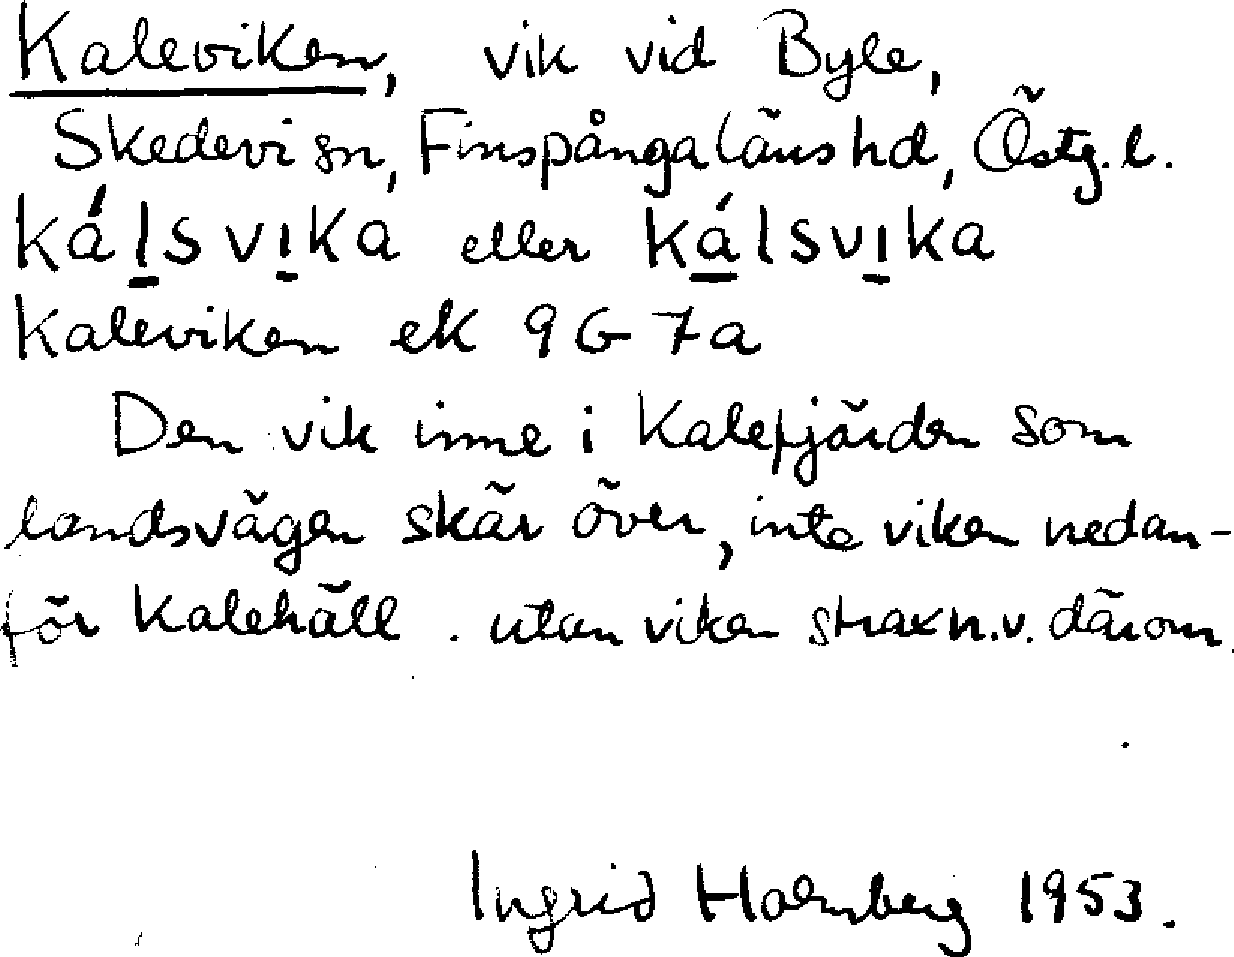 Kaleviken, vik vid Byle,
Skedevi sn, Finspånga läns hd, Östg. l.
kálsvika eller kálsvika
Kaleviken ek 9G 7a
Den vik inne i Kalefjärden som
landsvägen skär över, inte viken nedan-
för Kalehäll. utan viken strax n.v. därom.
Ingrid Holmberg 1953.